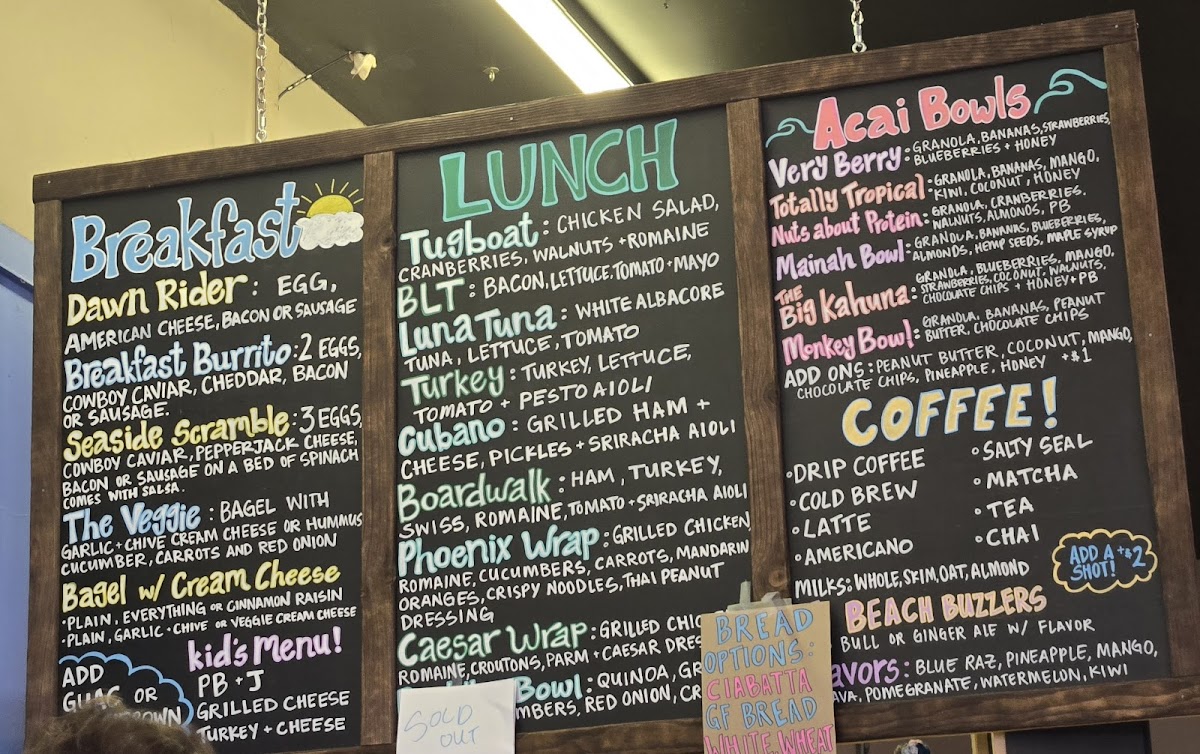 Breakfast
Dawn Rider: EGG,
AMERICAN CHEESE, BACON OR SAUSAGE
Breakfast Burrito: 2 EGGS,
COWBOY CAVIAR, CHEDDAR, BACON
OR SAUSAGE.
Seaside Scramble: 3 EGGS,
COWBOY CAVIAR, PEPPERJACK CHEESE,
BACON OR SAUSAGE ON A BED OF SPINACH
COMES WITH SALSA.
The Veggie: BAGEL WITH
GARLIC + CHIVE CREAM CHEESE OR HUMMUS
CUCUMBER, CARROTS AND RED ONION
Bagel w/ Cream Cheese
• PLAIN, EVERYTHING OR CINNAMON RAISIN
• PLAIN, GARLIC + CHIVE OR VEGGIE CREAM CHEESE
ADD
GUAC OR
kid's Menu!
PB + J
GRILLED CHEESE
TURKEY + CHEESE
LUNCH
Tugboat: CHICKEN SALAD,
CRANBERRIES, WALNUTS + ROMAINE
BLT: BACON, LETTUCE, TOMATO + MAYO
Luna Tuna: WHITE ALBACORE
TUNA, LETTUCE, TOMATO
Turkey: TURKEY, LETTUCE,
TOMATO + PESTO AIOLI
Cubano: GRILLED HAM +
CHEESE, PICKLES + SRIRACHA AIOLI
Boardwalk: HAM, TURKEY,
SWISS, ROMAINE, TOMATO + SRIRACHA AIOLI
Phoenix Wrap: GRILLED CHICKEN
ROMAINE, CUCUMBERS, CARROTS, MANDARIN
ORANGES, CRISPY NOODLES, THAI PEANUT
DRESSING
Caesar Wrap: GRILLED
ROMAINE, CROUTONS, PARM + CAESAR
Bowl: QUINOA,
RED ONION,
SOLD
OUT
BREAD
OPTIONS:
CIABATTA
GF BREAD
WHITE, WHEAT
Acai Bowls
Very Berry: GRANOLA, BANANAS, STRAWBERRIES,
BLUEBERRIES + HONEY
Totally Tropical: GRANOLA, BANANAS, MANGO,
KIWI, COCONUT, HONEY
Nuts about Protein: GRANOLA, CRANBERRIES,
WALNUTS, ALMONDS, PB
Mainah Bowl: GRANOLA, BANANAS, BLUEBERRIES,
ALMONDS, HEMP SEEDS, MAPLE SYRUP
THE Big Kahuna: GRANOLA, BLUEBERRIES, MANGO,
STRAWBERRIES, COCONUT, WALNUTS,
CHOCOLATE CHIPS + HONEY + PB
Monkey Bowl: GRANOLA, BANANAS, PEANUT
BUTTER, CHOCOLATE CHIPS
ADD ONS: PEANUT BUTTER, COCONUT, MANGO,
CHOCOLATE CHIPS, PINEAPPLE, HONEY +$1
COFFEE!
• DRIP COFFEE
• COLD BREW
• LATTE
• AMERICANO
• SALTY SEAL
• MATCHA
• TEA
• CHAI
MILKS: WHOLE, SKIM, OAT, ALMOND
ADD A +$2
SHOT!
BEACH BUZZERS
BULL OR GINGER ALE W/ FLAVOR
BLUE RAZ, PINEAPPLE, MANGO,
POMEGRANATE, WATERMELON, KIWI